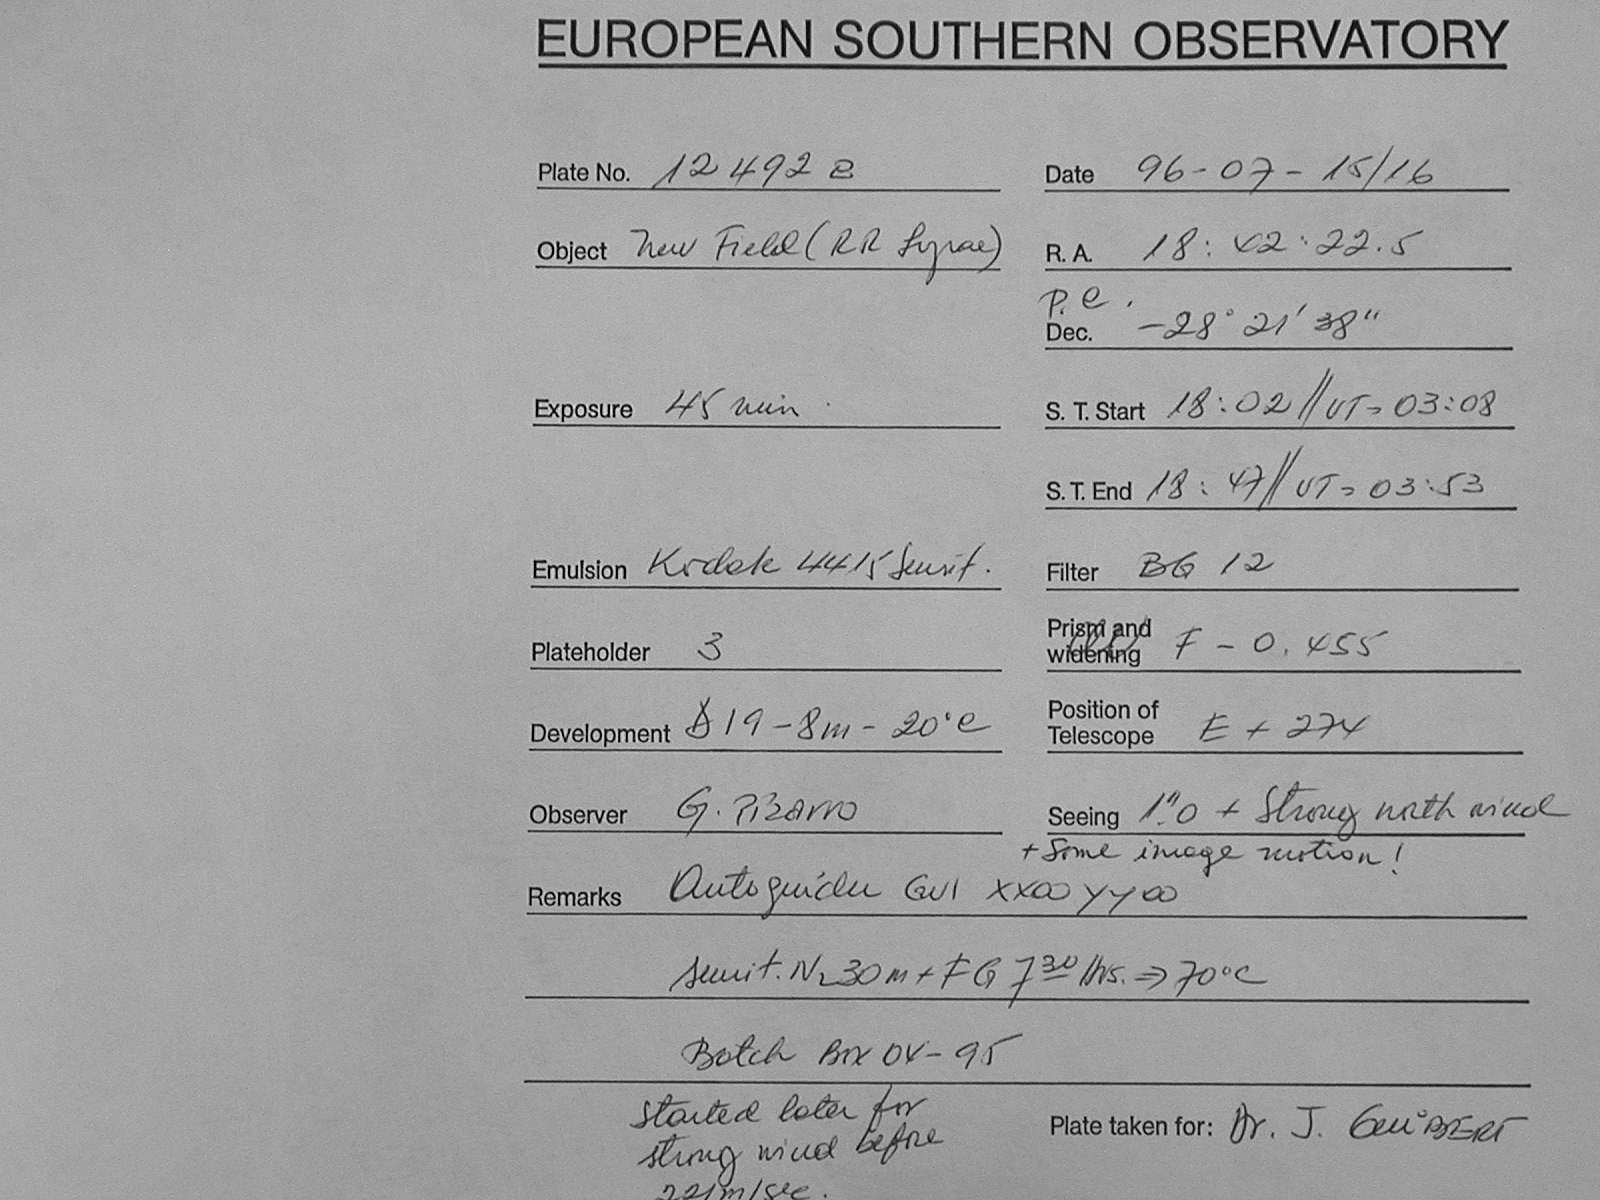 EUROPEAN SOUTHERN OBSERVATORY
Plate No. 12492 Date 96-07-15/16
Object New Field (RR Lyrae) R. A. 18:42:22.5
P.e.
Dec. -28° 21' 38"
Exposure 45 min. S. T. Start 18:02//UT=03:08
S. T. End 18:47//UT=03:53
Emulsion Kodak 4415 Sensit. Filter BG 12
Plateholder 3 Prism and widening F-0.455
Development D19-8m-20°C Position of Telescope E + 274
Observer G. Pizarro Seeing 1".0 + Strong north wind
+ Some image motion!
Remarks Autoguider GV1 XX00 YY00
Sensit. N2 30m + FG 7 30 hrs. ⇒ 70°C
Batch Box 04-95
Started later for
strong wind before
22/m/sec.
Plate taken for: Dr. J. GUIBERT